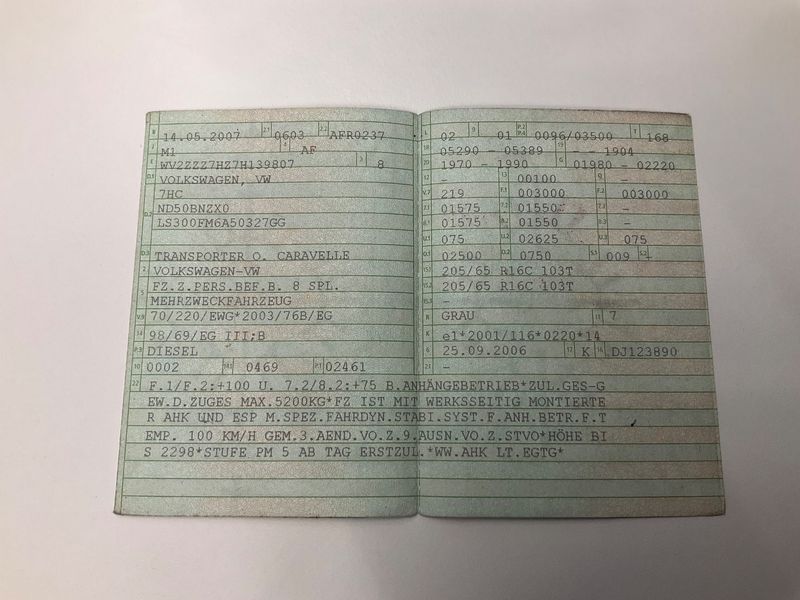 B 14.05.2007 2.1 0603 2.2 AFR0237
J M1 4 AF
E WV2ZZZ7HZ7H139807 3 8
D.1 VOLKSWAGEN, VW
7HC
D.2 ND50BNZX0
LS300FM6A50327GG
D.3 TRANSPORTER O. CARAVELLE
2 VOLKSWAGEN-VW
5 FZ.Z.PERS.BEF.B. 8 SPL.
MEHRZWECKFAHRZEUG
V.9 70/220/EWG*2003/76B/EG
14 98/69/EG III;B
P.3 DIESEL
10 0002 14.1 0469 P.1 02461
L 02 9 01 P.2 P.4 0096/03500 T 168
18 05290 - 05389 19 - - 1904
20 1970 - 1990 G 01980 - 02220
12 - 13 00100 Q -
V.7 219 F.1 003000 F.2 003000
7.1 01575 7.2 01550 7.3 -
8.1 01575 8.2 01550 8.3 -
U.1 075 U.2 02625 U.3 075
O.1 02500 O.2 0750 S.1 009 S.2 -
15.1 205/65 R16C 103T
15.2 205/65 R16C 103T
15.3 -
R GRAU 11 7
K e1*2001/116*0220*14
6 25.09.2006 17 K 16 DJ123890
21 -
22 F.1/F.2:+100 U. 7.2/8.2:+75 B.ANHÄNGEBETRIEB*ZUL.GES-G
EW.D.ZUGES MAX.5200KG*FZ IST MIT WERKSSEITIG MONTIERTE
R AHK UND ESP M.SPEZ.FAHRDYN.STABI.SYST.F.ANH.BETR.F.T
EMP. 100 KM/H GEM.3.AEND.VO.Z.9.AUSN.VO.Z.STVO*HÖHE BI
S 2298*STUFE PM 5 AB TAG ERSTZUL.*WW.AHK LT.EGTG*